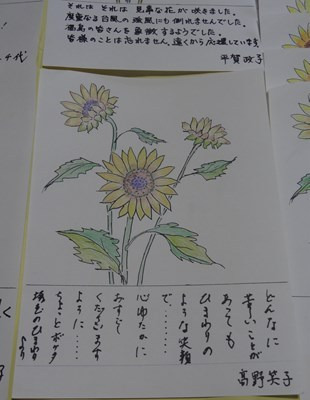 それは それは 見事な花が咲きました。
度重なる台風の強風にも倒れませんでした。
福島の皆さんを象徴するようでした。
皆様のことは忘れません、遠くから応援しています
平賀 政子
千代
どんなに
苦しいことが
あっても
ひまわりの
ような笑顔
で……
心ゆたかに
すごして
くださいます
ように……
ボラダ
埼玉のひまわり
より
高野笑子